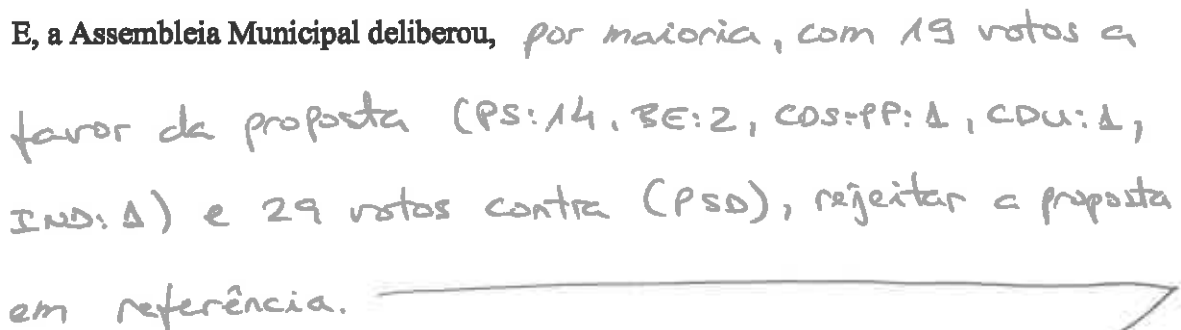 E, a Assembleia Municipal deliberou, por maioria, com 19 votos a
favor da proposta (PS:14, BE:2, CDS-PP:1, CDU:1,
IND:1) e 29 votos contra (PSD), rejeitar a proposta
em referência.